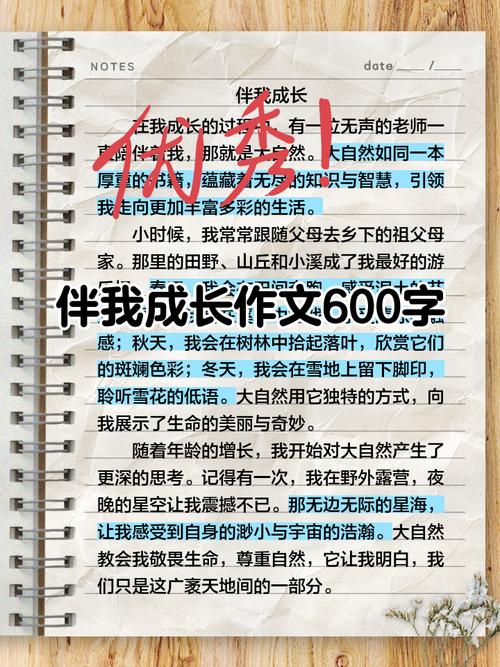 NOTES
date ____ /____
伴我成长
在我成长的过程中,有一位无声的老师一
直陪伴着我,那就是大自然。大自然如同一本
厚重的书籍,蕴藏着无尽的知识与智慧,引领
我走向更加丰富多彩的生活。
优秀!
小时候,我常常跟随父母去乡下的祖父母
家。那里的田野、山丘和小溪成了我最好的游
伴我成长作文600字
感;秋天,我会在树林中拾起落叶,欣赏它们
的斑斓色彩;冬天,我会在雪地上留下脚印,
聆听雪花的低语。大自然用它独特的方式,向
我展示了生命的美丽与奇妙。
随着年龄的增长,我开始对大自然产生了
更深的思考。记得有一次,我在野外露营,夜
晚的星空让我震撼不已。那无边无际的星海,
让我感受到自身的渺小与宇宙的浩瀚。大自然
教会我敬畏生命,尊重自然,它让我明白,我
们只是这广袤天地间的一部分。